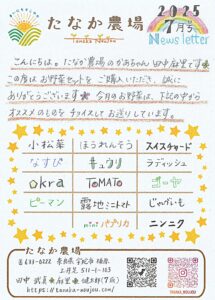 たなか農場
Tanaka Noujou
2025
7月号
Newsletter
こんにちは。たなか農場のかあちゃん 田中麻里です
この度はお野菜セットをご購入いただき、誠に
ありがとうございます 今月のお野菜は、下記の中から
オススメのものをチョイスしてお送りしています。
小松菜 ほうれんそう スイスチャード
なすび キュウリ ラディッシュ
Okra TOMATO ゴーヤ
ピーマン 露地ミニトマト じゃがいも
mini パプリカ ニンニク
たなか農場
田中 武 麻里
https://tanaka-noujou.com/
TANAKA_NOUJOU